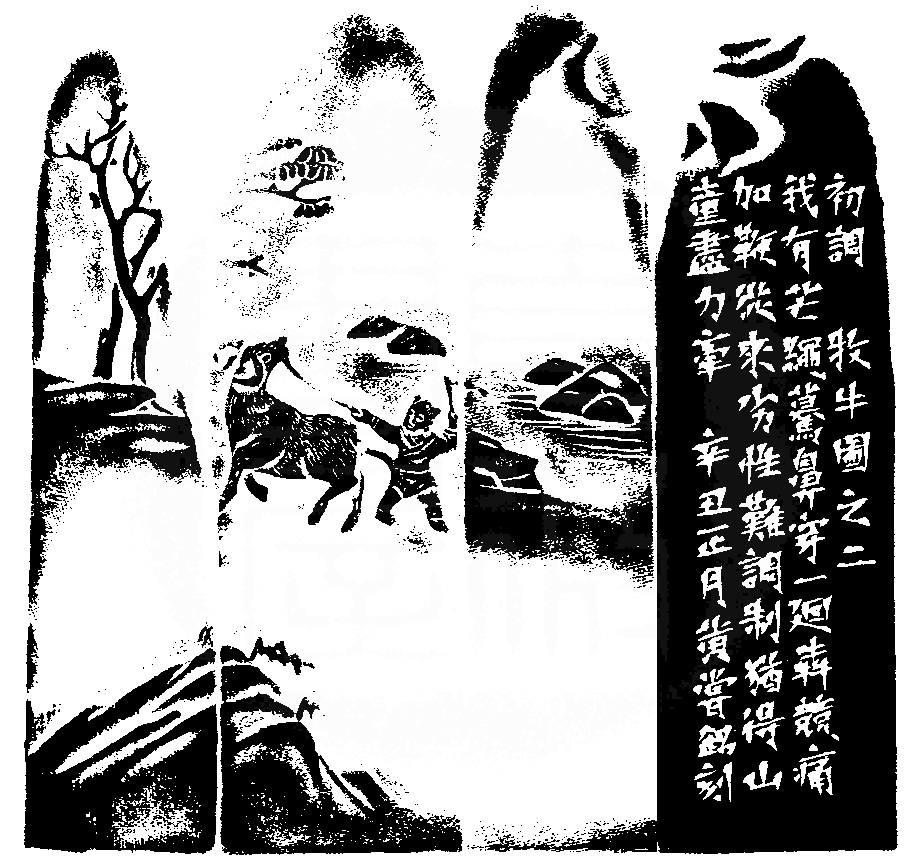 初調 牧牛圖之二
我有芒繩驀鼻穿一廻奔競痛
加鞭從來劣性難調制猶得山
童盡力牽 辛丑正月黃嘗銘刻